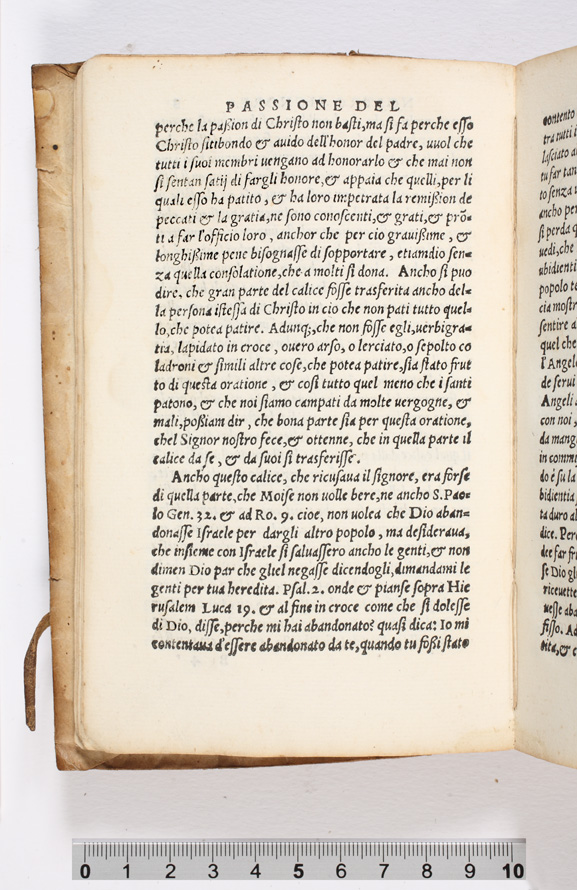 PASSIONE DEL
perche la paßion di Christo non basti, ma si fa perche esso
Christo sitibondo & auido dell'honor del padre, uuol che
tutti i suoi membri uengano ad honorarlo & che mai non
si sentan satij di fargli honore, & appaia che quelli, per li
quali esso ha patito, & ha loro impetrata la remißion de
peccati & la gratia, ne sono conoscenti, & grati, & prō-
ti a far l'officio loro, anchor che per cio grauißime, &
longhißime pene bisognasse di sopportare, etiamdio sen-
za quella consolatione, che a molti si dona. Ancho si puo
dire, che gran parte del calice fosse trasferita ancho del-
la persona istessa di Christo in cio che non pati tutto quel-
lo, che potea patire. Adunq;, che non fosse egli, uerbigra-
tia, lapidato in croce, ouero arso, o lerciato, o sepolto co
ladroni & simili altre cose, che potea patire, sia stato frut
to di questa oratione, & cosi tutto quel meno che i santi
patono, & che noi siamo campati da molte uergogne, &
mali, poßiam dir, che bona parte sia per questa oratione,
chel Signor nostro fece, & ottenne, che in quella parte il
calice da se, & da suoi si trasferisse.
Ancho questo calice, che ricusaua il signore, era forse
di quella parte, che Moise non uolle bere, ne ancho S. Pao-
lo Gen. 32. & ad Ro. 9. cioe, non uolea che Dio aban-
donasse Israele per dargli altro popolo, ma desideraua,
che insieme con Israele si saluassero ancho le genti, & non
dimen Dio par che gliel negasse dicendogli, dimandami le
genti per tua heredita. Psal. 2. onde & pianse sopra Hie
rusalem Luca 19. & al fine in croce come che si dolesse
di Dio, disse, perche mi hai abandonato? quasi dica: Io mi
contentaua d'essere abandonato da te, quando tu foßi stato
contento
tra tutti i
lasciato a
tu far tan
to senza
ancho per
si perda q
uedi, che
ubidienti
popolo te
cia mostr
sentire a
quel che
l'Angel
de serui
Angeli
con noi,
da mang
in commu
do è su la
bidientia
ta duro al
dice. Per
dee far fr
se Dio gl
riceuette
uesse aba
fisso. Ad
uita, & c
0 1 2 3 4 5 6 7 8 9 10